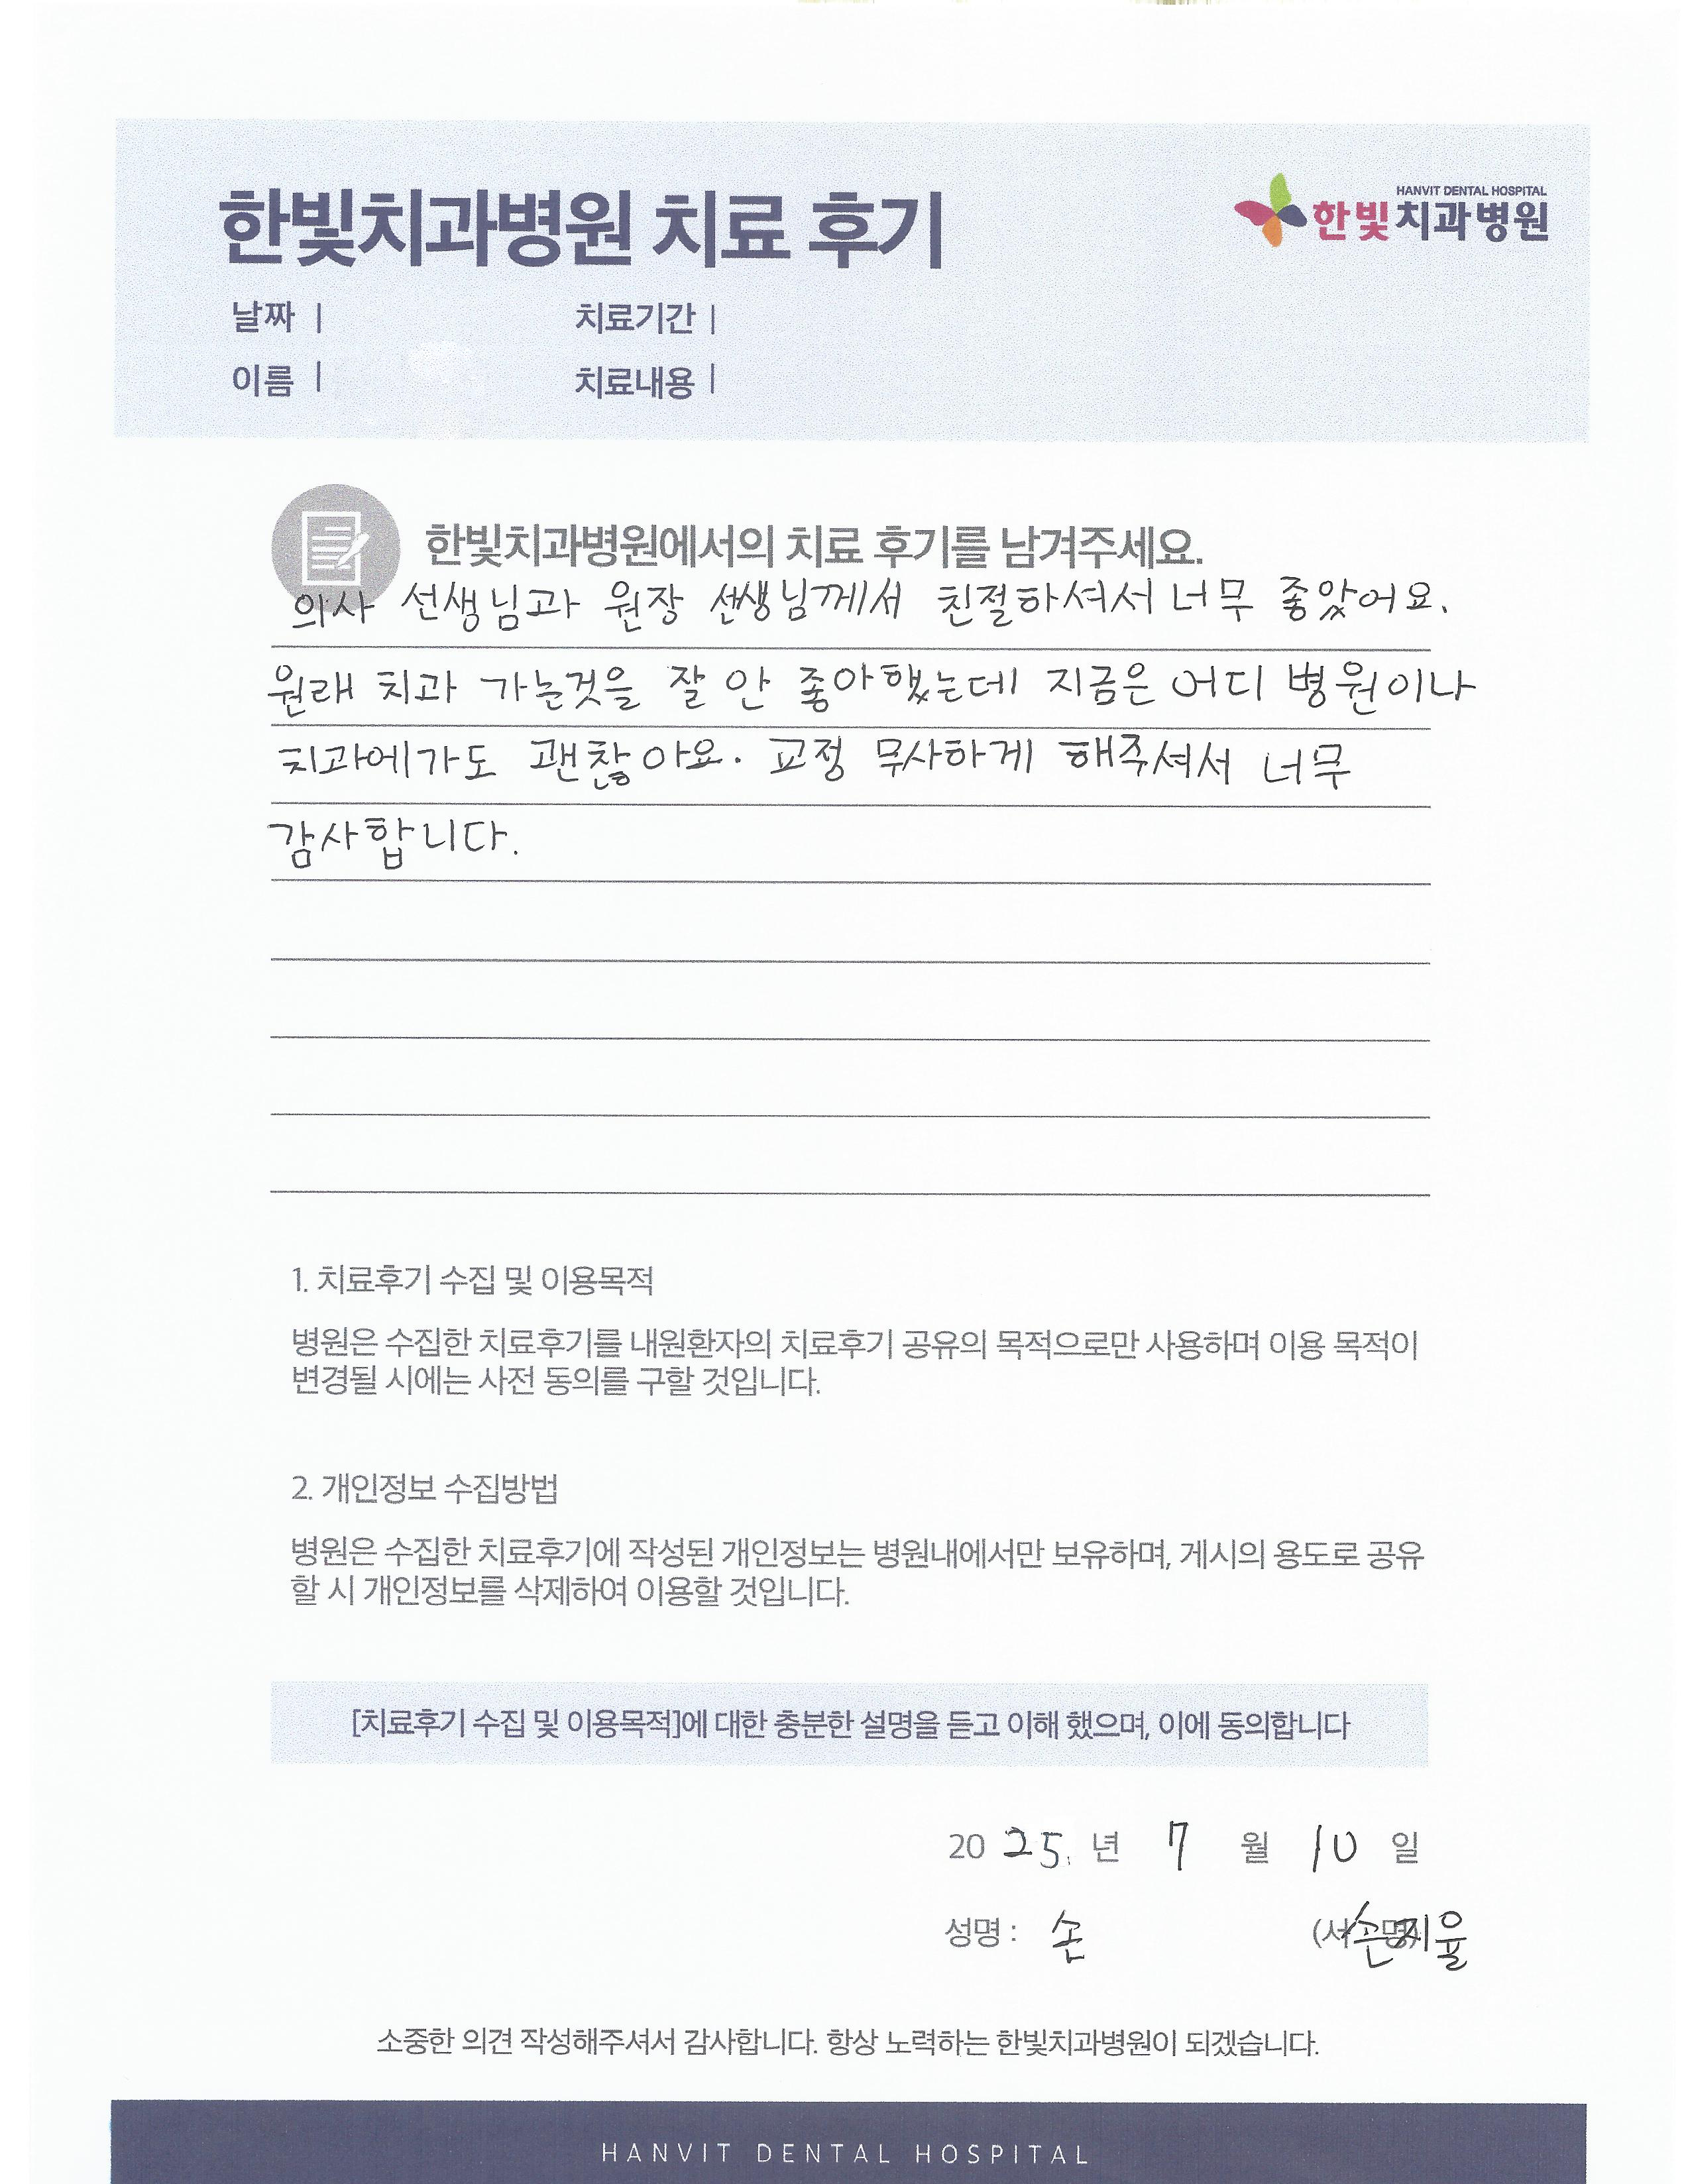 한빛치과병원 치료 후기
HANVIT DENTAL HOSPITAL
한빛치과병원
날짜 |
치료기간 |
이름 |
치료내용 |
한빛치과병원에서의 치료 후기를 남겨주세요.
의사 선생님과 원장 선생님께서 친절하셔서 너무 좋았어요.
원래 치과 가는것을 잘 안 좋아했는데 지금은 어디 병원이나
치과에가도 괜찮아요. 교정 무사하게 해주셔서 너무
감사합니다.
1. 치료후기 수집 및 이용목적
병원은 수집한 치료후기를 내원환자의 치료후기 공유의 목적으로만 사용하며 이용 목적이
변경될 시에는 사전 동의를 구할 것입니다.
2. 개인정보 수집방법
병원은 수집한 치료후기에 작성된 개인정보는 병원내에서만 보유하며, 게시의 용도로 공유
할 시 개인정보를 삭제하여 이용할 것입니다.
[치료후기 수집 및 이용목적]에 대한 충분한 설명을 듣고 이해 했으며, 이에 동의합니다
20 25. 년 7 월 10 일
성명 : 손 (서명) 손지율
소중한 의견 작성해주셔서 감사합니다. 항상 노력하는 한빛치과병원이 되겠습니다.
HANVIT DENTAL HOSPITAL